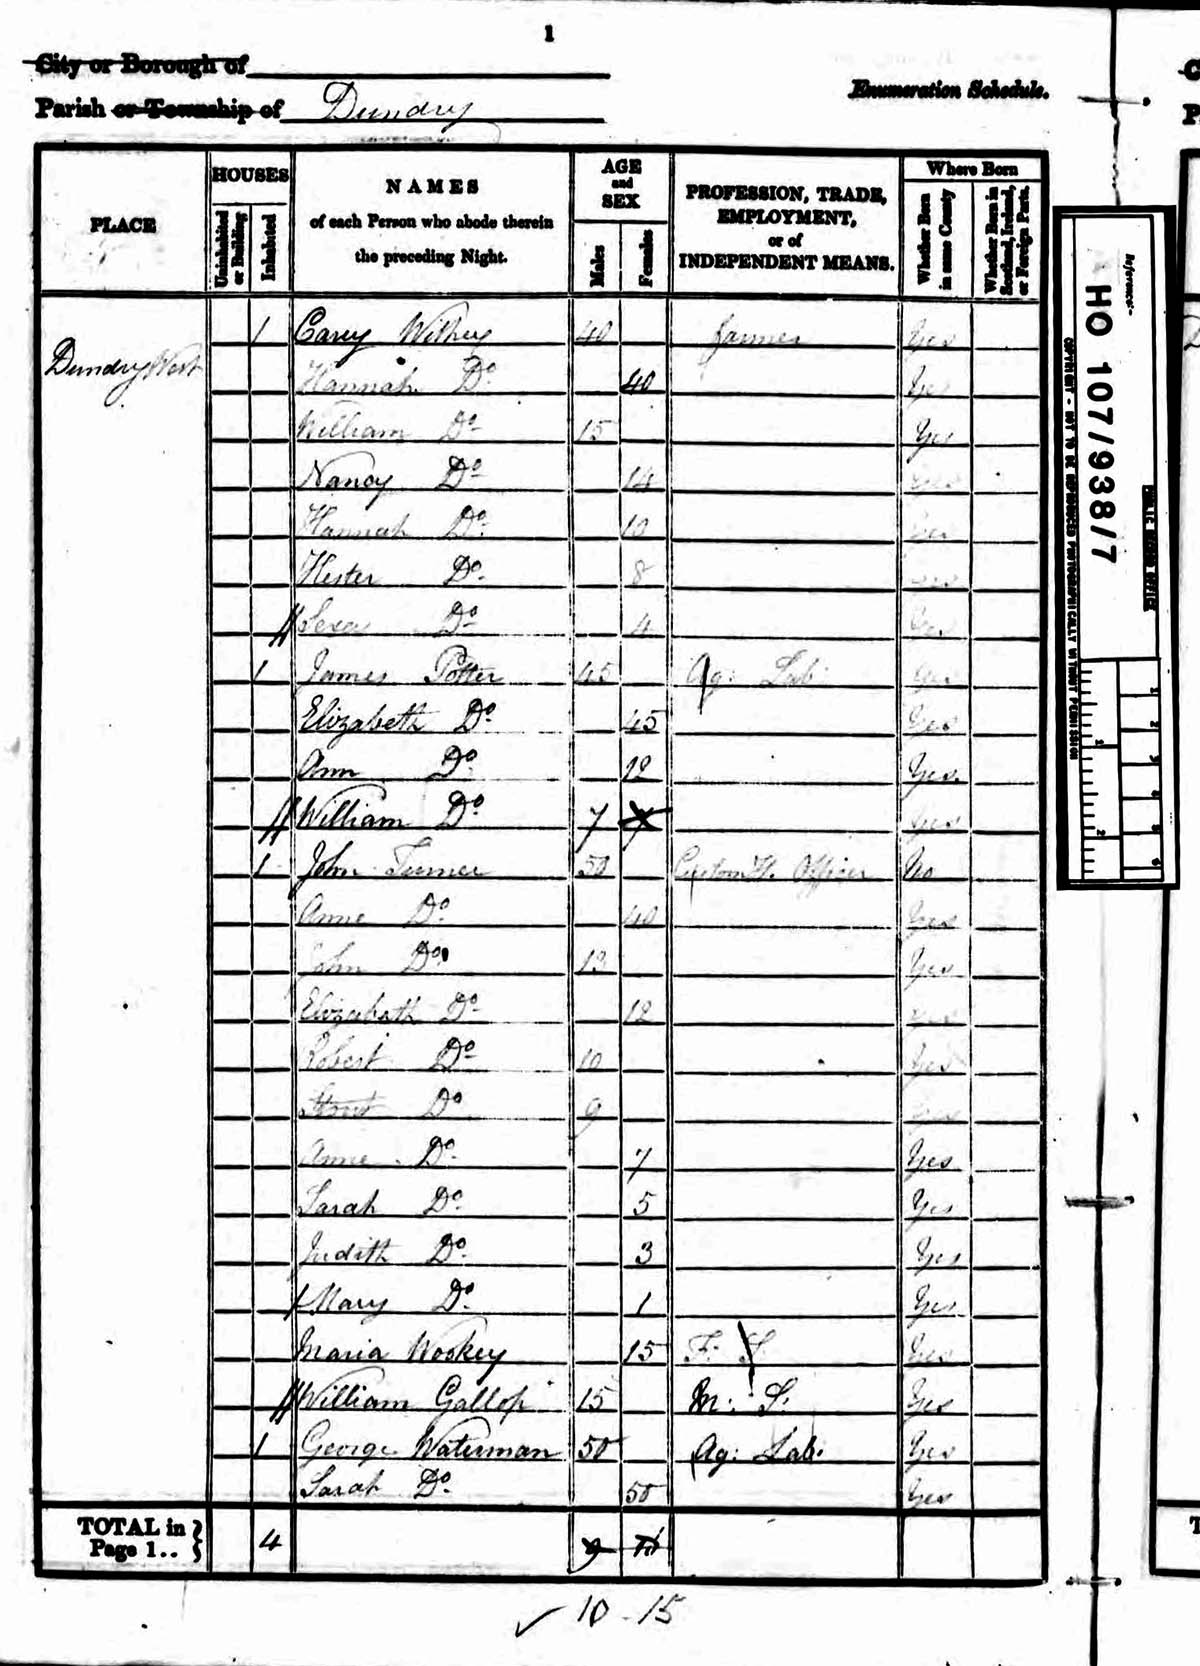 1
City or Borough of
Parish or Township of Dundry
Enumeration Schedule.
PLACE
HOUSES
Uninhabited or Building
Inhabited
NAMES
of each Person who abode therein
the preceding Night.
AGE
and
SEX
Males
Females
PROFESSION, TRADE,
EMPLOYMENT,
or of
INDEPENDENT MEANS.
Where Born
Whether Born in same County
Whether Born in Scotland, Ireland, or Foreign Parts.
Dundry West
1 Carey Withey 40 farmer Yes
Hannah Do 40 Yes
William Do 15 Yes
Nancy Do 14 Yes
Hannah Do 10 Yes
Hester Do 8 Yes
Do 4 Yes
1 James Potter 45 Ag: Lab: Yes
Elizabeth Do 45 Yes
Ann Do 12 Yes.
William Do 7 7 Yes
1 John Turner 50 Custom H. Officer No
Anne Do 40 Yes
John Do 13 Yes
Elizabeth Do 12 Yes
Robert Do 10 Yes
Do 9 Yes
Anne Do 7 Yes
Sarah Do 5 Yes
Judith Do 3 Yes
Mary Do 1 Yes
Maria Wookey 15 F: S Yes
William Gallop 15 M: S: Yes
1 George Waterman 50 Ag: Lab: Yes
Sarah Do 50 Yes
TOTAL in
Page 1..
4 9
10 - 15
Reference:-
HO 107/938/7
PUBLIC RECORD OFFICE
COPYRIGHT - NOT TO BE REPRODUCED PHOTOGRAPHICALLY WITHOUT PERMISSION